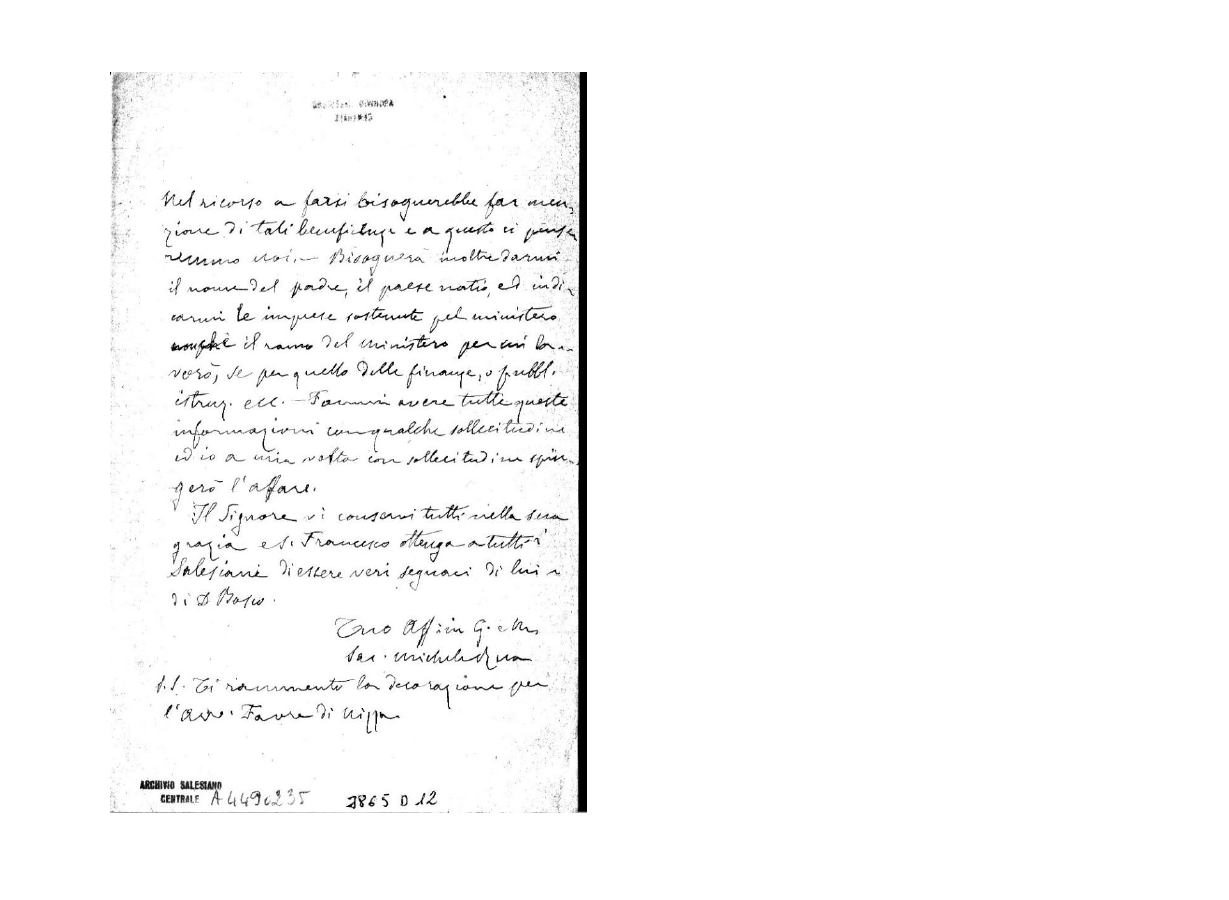 Nel ricorso a farsi bisognerebbe far men-
zione di tali beneficenze e a questo ci pense
remmo noi. — Bisognerà inoltre darmi
il nome del padre, il paese natio, ed indi-
carmi le imprese sostenute pel ministero
nonchè il ramo del ministero per cui la-
vorò, se per quello delle finanze, o pubbl.
istruz. ecc. — Fammi avere tutte queste
informazioni con qualche sollecitudine
ed io a mia volta con sollecitudine spin-
gerò l'affare.
Il Signore vi conservi tutti nella sua
grazia e S. Francesco ottenga a tutti i
Salesiani di essere veri seguaci di lui e
di D Bosco.
Tuo Aff.in G. e M.
Sac. Michele Rua
P.S. Ti rammento la decorazione per
l'Avv. Faure di Nizza
ARCHIVIO SALESIANO
CENTRALE A4490235 3865 D 12